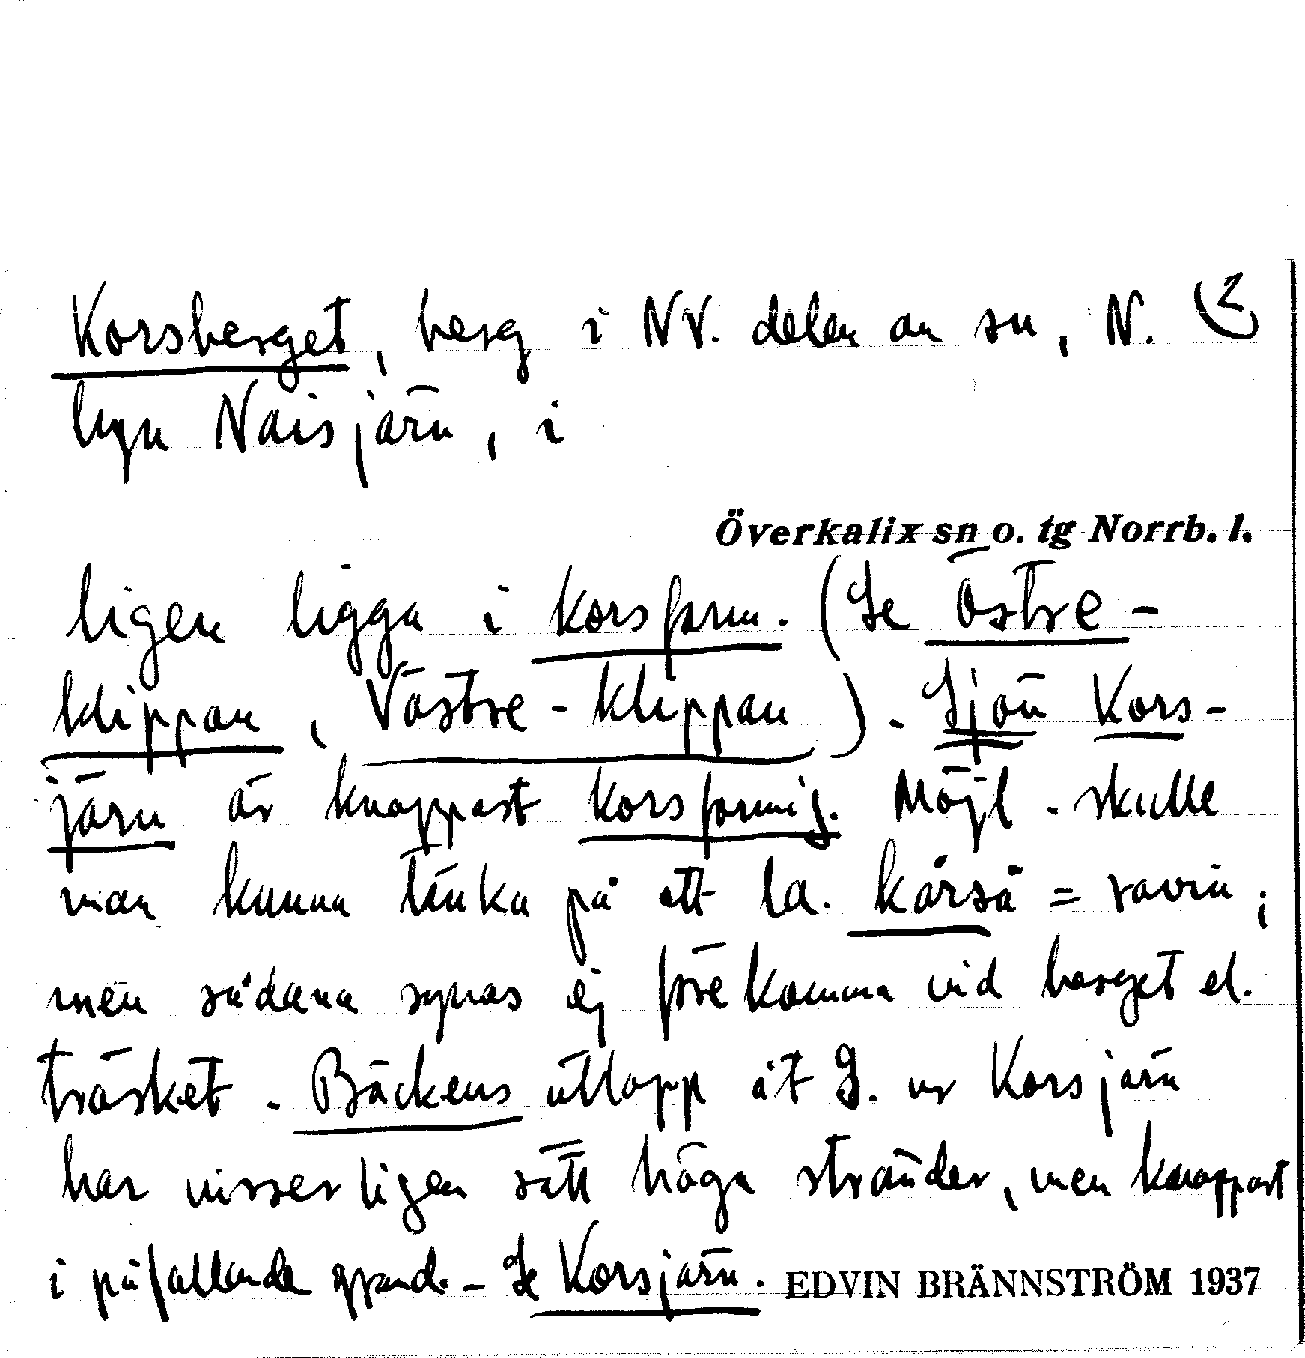 Korsberget, berg i NV. delen av sn, N. 2)
byn Naisjärv, i
Överkalix sn o. tg Norrb. l.
ligen ligga i korsform. (Se Östre-
klippan, Västre-klippan). Sjön Kors-
järv är knappast korsformig. Möjl. skulle
man kunna tänka på ett la. kårså = ravin;
men sådana synas ej förekomma vid berget el.
träsket. Bäckens utlopp åt S. ur Korsjärv
har visserligen rätt höga stränder, men knappast
i påfallande grad. - Se Korsjärv. EDVIN BRÄNNSTRÖM 1937